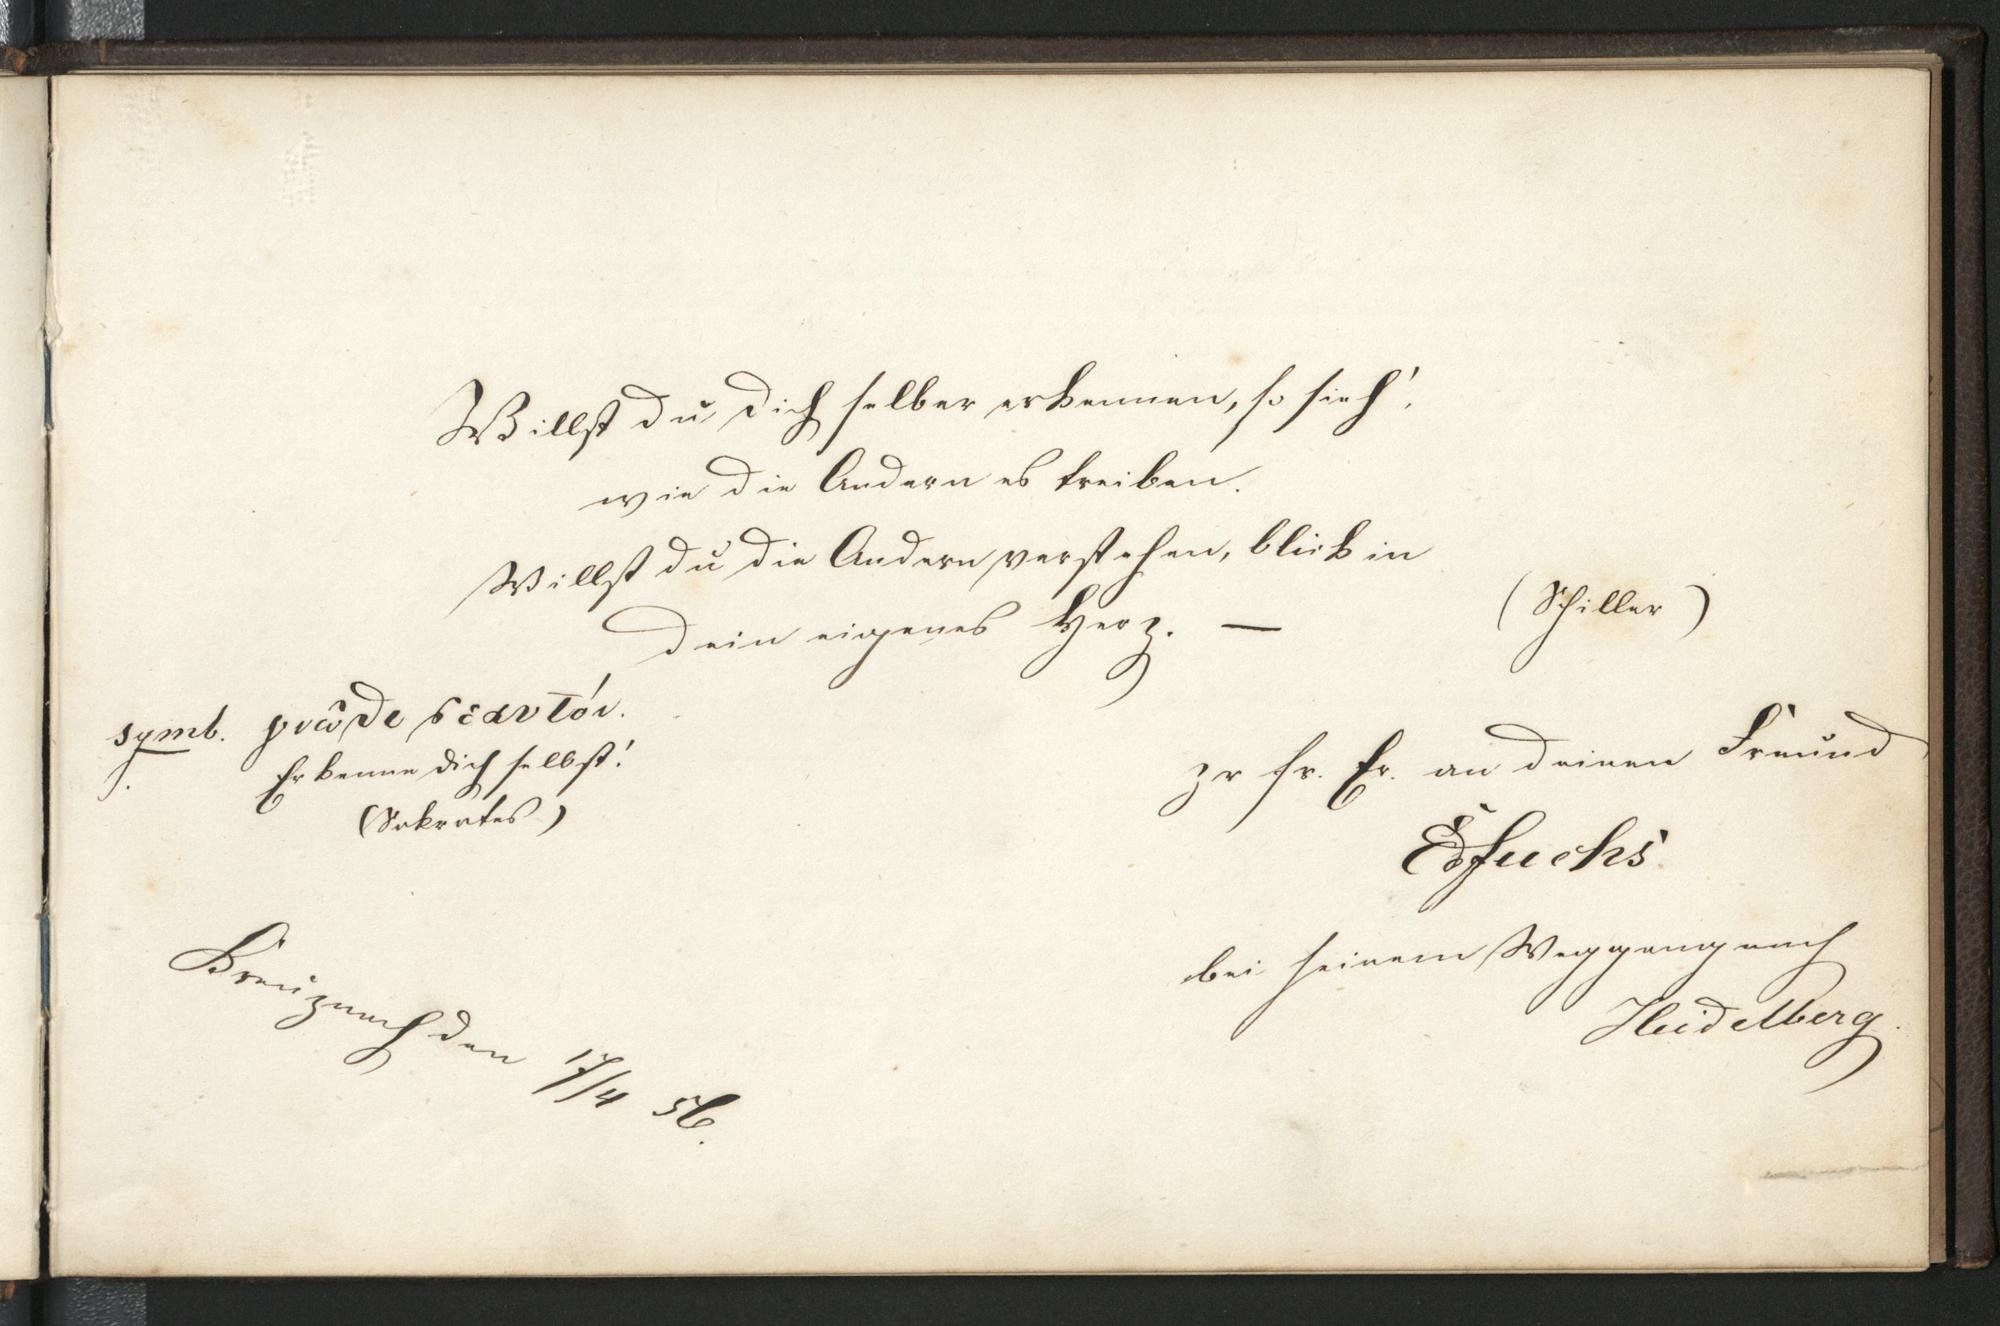 Willst du dich selber erkennen, so sieh',
wie die Andern es treiben.
Willst du die Andern verstehen, blick in
dein eigenes Herz. —
(Schiller)
symb. γνῶθε σεαυτόν.
Erkenne dich selbst!
(Sokrates)
zr fr. Er. an deinen Freund
EdFuchs
bei seinem Weggang nach
Heidelberg.
Kreuznach den 17/4 56.